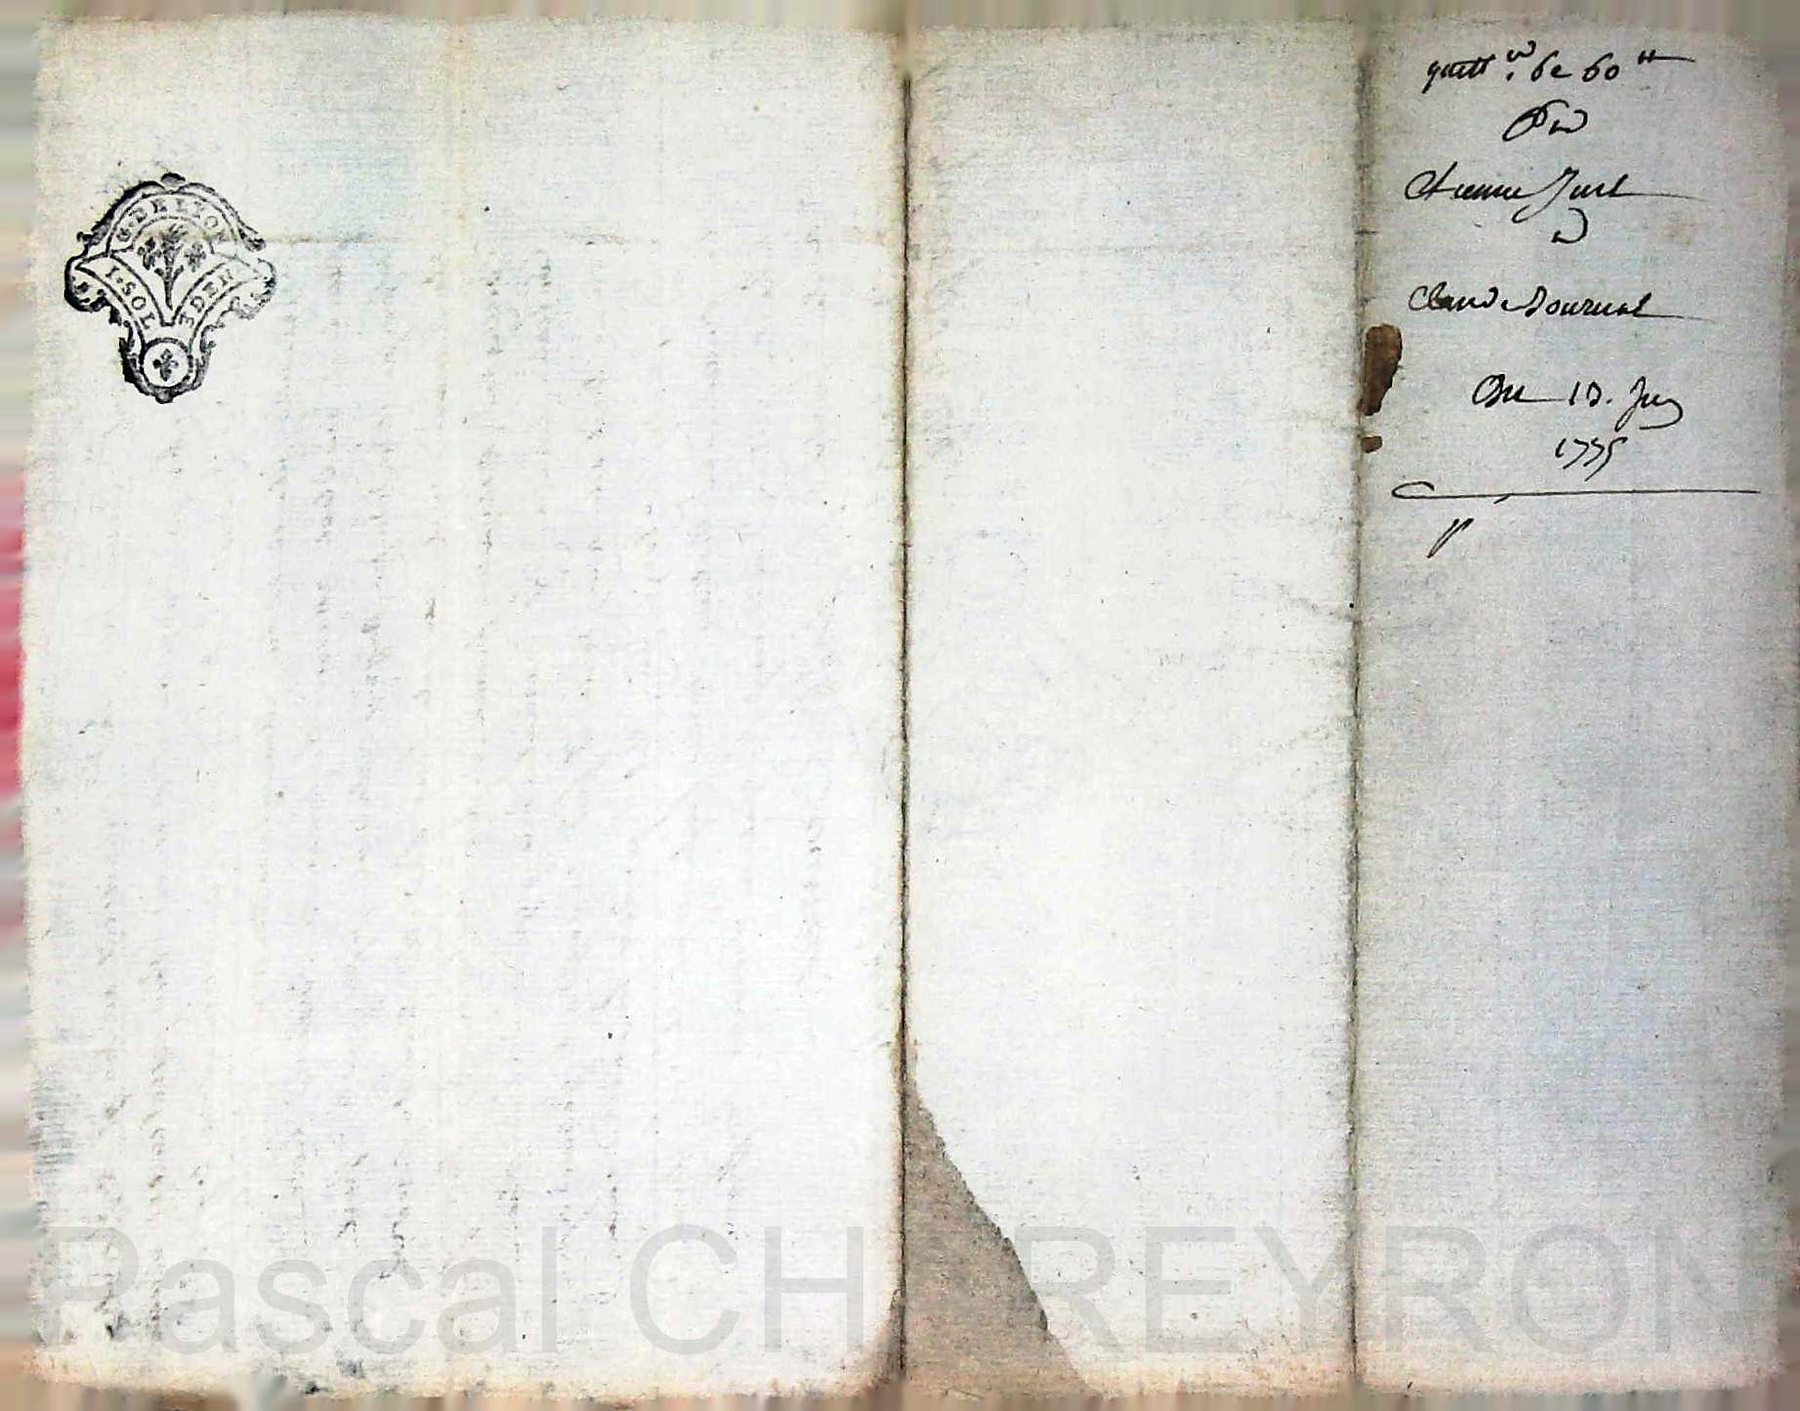 G. DE LYON
1. SOL 
quitt.ce de 60 tt
Pour
Etienne Just
a
Claude Fournat
Du 13. Juin
1775
Pascal CHAREYRON